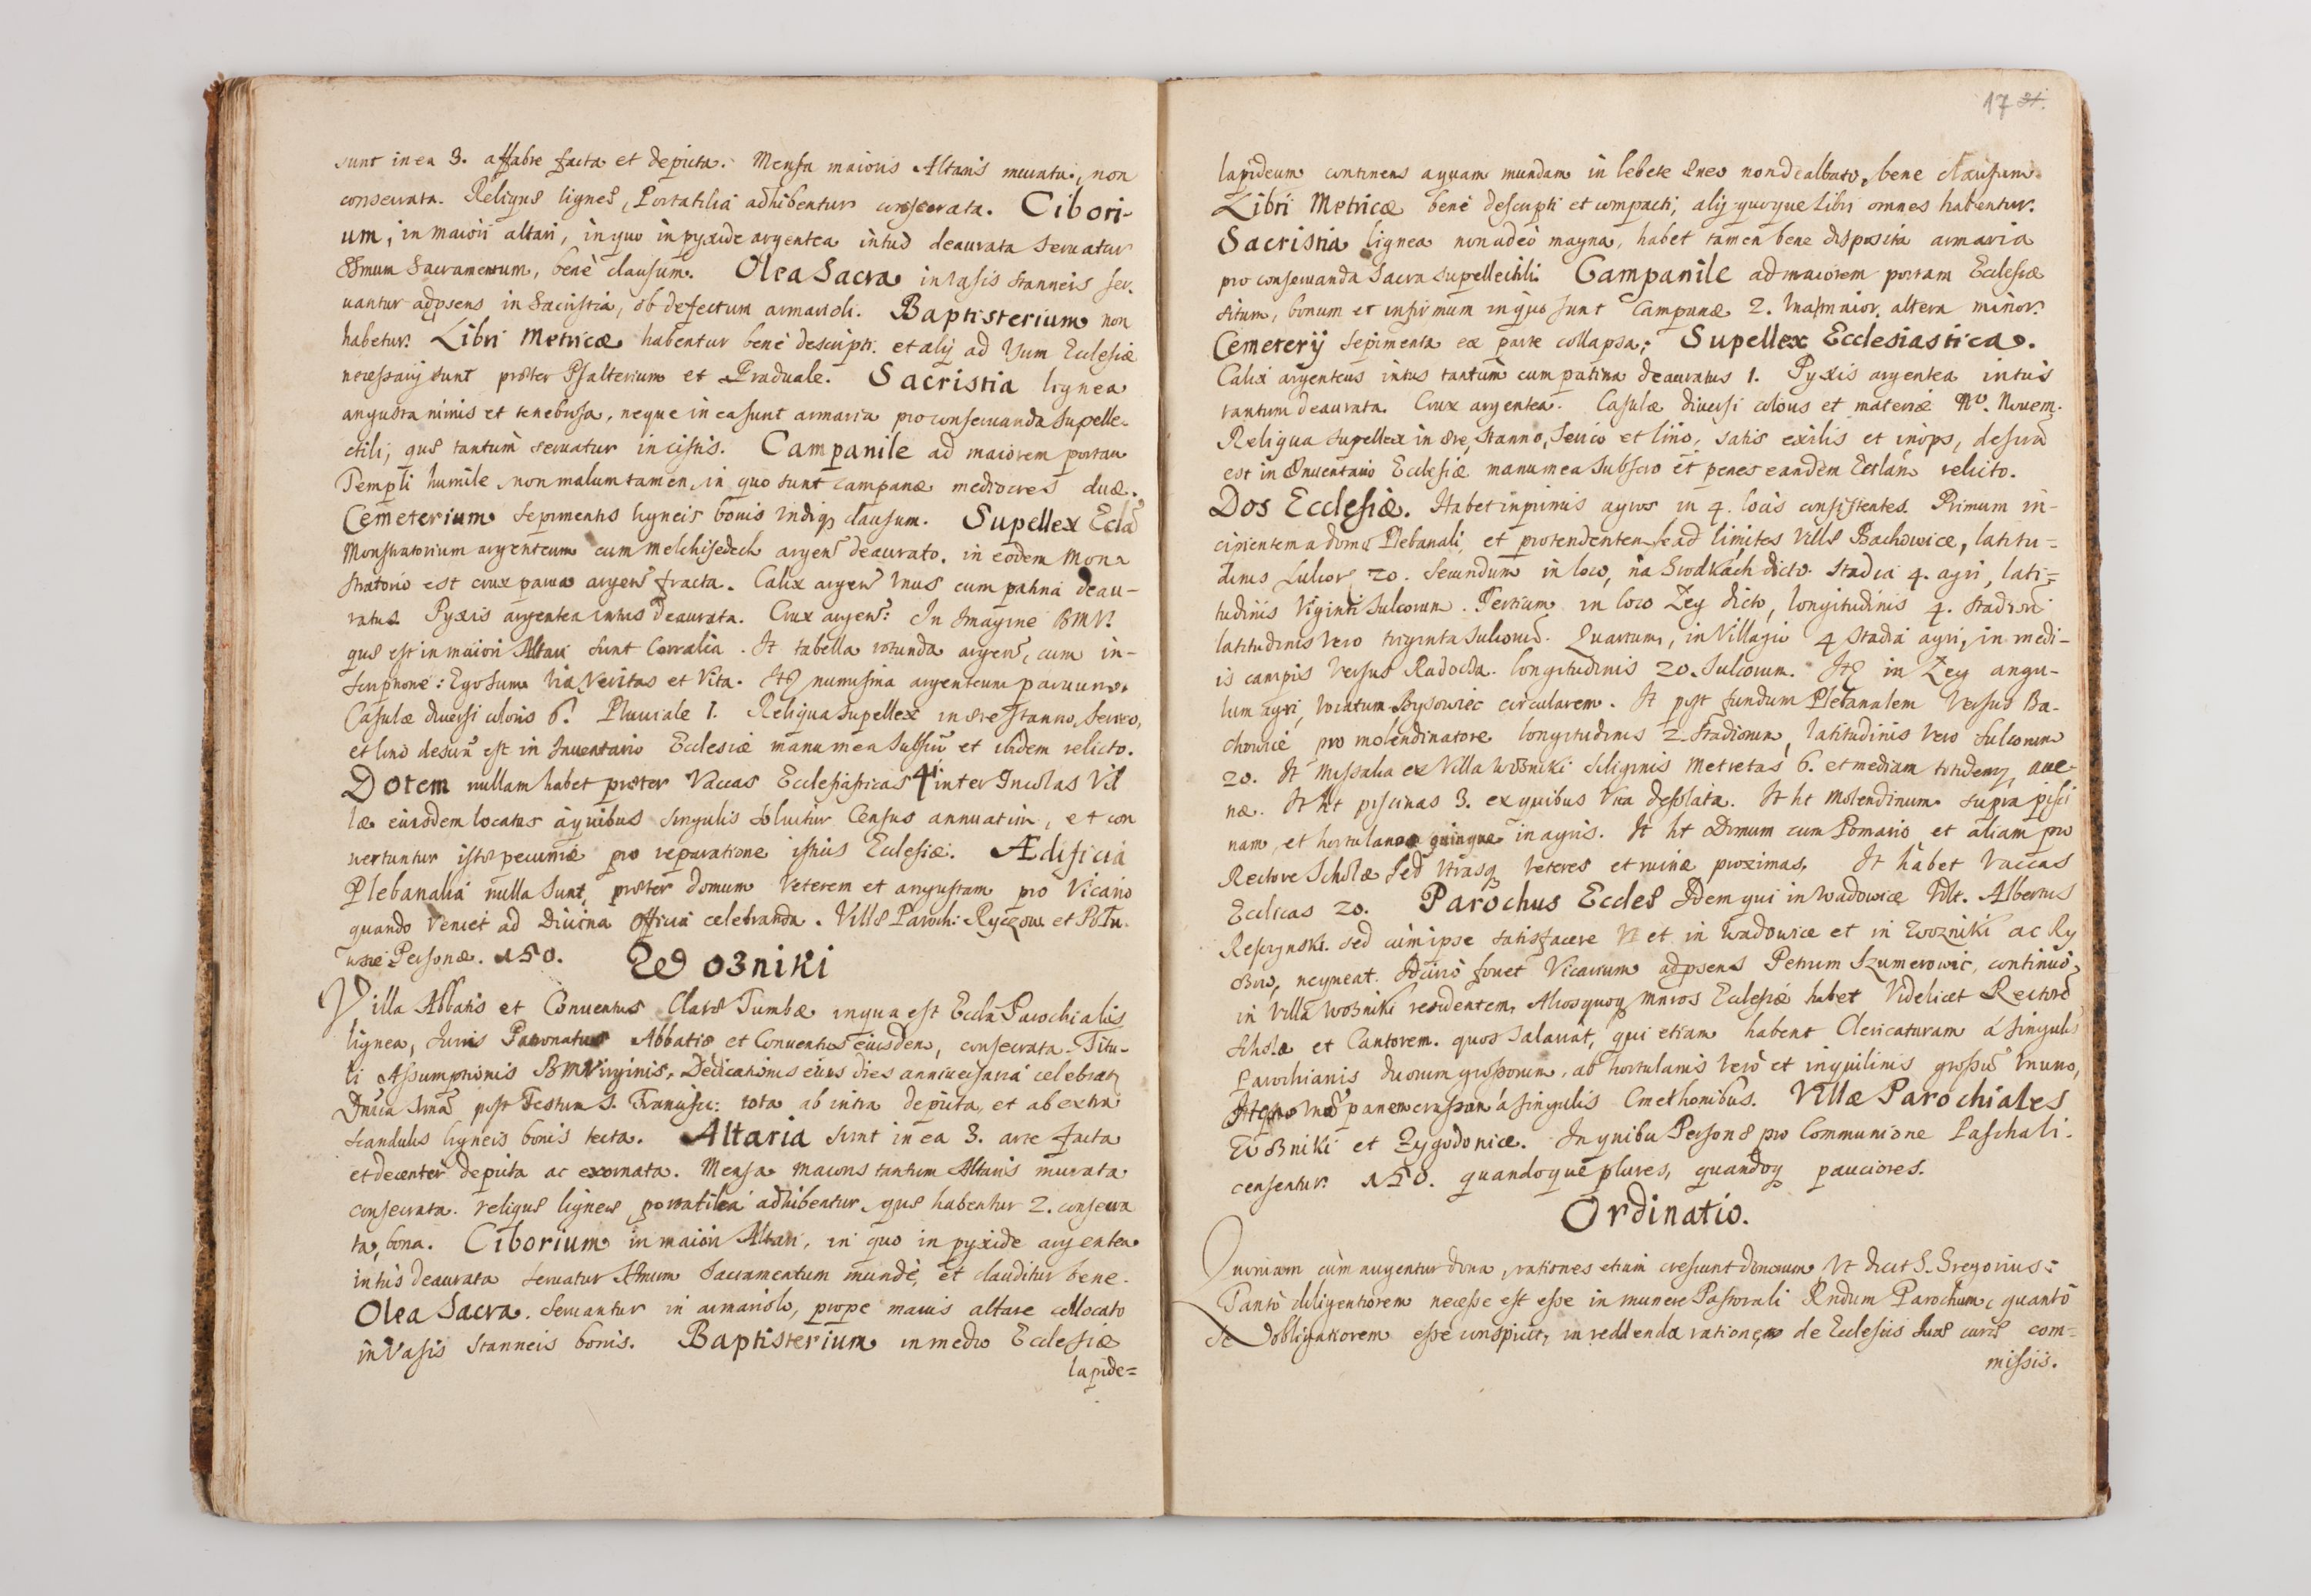 sunt in ea 3. affabre facta et depicta. Mensa maioris Altaris murata, non
consecrata. Reliquę ligneę, Portatilia adhibentur consecrata. Cibori-
um, in maiori altari, in quo in pyxide argentea intus deaurata seruatur
SSmum Sacramentum, benè clausum. Olea Sacra in Vasis stanneis ser-
uantur adpsens in Sacristia, ob defectum armarioli. Baptisterium non
habetur. Libri Metricæ habentur benè descripti. et alij ad Vsum Ecclesiæ
necessarij sunt præter Psalterium et Graduale. Sacristia lignea
angusta nimis et tenebrosa, neque in ea sunt armaria pro conseruanda supelle-
ctili, quę tantùm seruatur in cistis. Campanile ad maiorem portam
Templi humile, non malum tamen, in quo sunt campanæ mediocres duæ.
Cemeterium sepimentis ligneis bonis Vndiq clausum. Supellex Eclã
Monstratorium argenteum cum Melchisedech argen deaurato. in eodem Mon-
stratorio est crux parua argen fracta. Calix argen Vnus cum patina deau-
ratus. Pyxis argentea intus deaurata. Crux argen: In Imagine BMV.
quę est in maiori Altari sunt Corralia. It tabella rotunda argen, cum in-
scriptione: Ego sum Via Veritas et Vita. Itẽ numisma argenteum paruum.
Casulæ diuersi coloris 6. Pluuiale 1. Reliqua supellex in ære stanno, serico,
et lino descri est in Inuentario Ecclesiæ manu mea subscri et ibidem relicto.
Dotem nullam habet præter Vaccas Ecclesiasticas 4 inter Incolas Vil
læ eiusdem locatas à quibus singulis soluitur Census annuatim, et con
uertuntur istæ pecuniæ pro reparatione istius Ecclesiæ. Ædificia
Plebanalia nulla sunt, præter domum Veterem et angustam pro Vicario
quando Veniet ad Diuina officia celebranda. Villę Paroch: Ryczow et Połu-
wsie Personæ. 150. Wozniki
Villa Abbatis et Conuentus Claræ Tumbæ in qua est Eccla Parochialis
lignea, Iuris Patronatus Abbatis et Conuentus eiusdem, consecrata. Titu-
li Assumptionis BMVirginis, Dedicationis eius dies anniuersaria celebrat
Dnica Ima post Festum S. Francisci: tota ab intra depicta, et ab extra
scandulis ligneis bonis tecta. Altaria sunt in ea 3. arte facta
et decenter depicta ac exornata. Mensa maioris tantum Altaris murata
consecrata. reliquę ligneę, portatilia adhibentur, quę habentur 2. consecra
ta, bona. Ciborium in maiori Altari, in quo in pyxide argentea
intùs deaurata seruatur SSmum Sacramentum mundè, et clauditur bene.
Olea Sacra. seruantur in armariolo, prope maius altare collocato
in Vasis stanneis bonis. Baptisterium in medio Ecclesiæ
lapide=
17 31.
lapideum continens aquam mundam in lebete æneo non dealbato, bene clausum.
Libri Metricæ benè descripti et compacti, alij quoque Libri omnes habentur.
Sacristia lignea non adeò magna, habet tamen bene disposita armaria
pro conseruanda Sacra supellectili. Campanile ad maiorem portam Ecclesiæ
situm, bonum et infirmum in quo sunt Campanæ 2. Vna maior. altera minor.
Cemeterij sepimenta ex parte collapsa. Supellex Ecclesiastica.
Calix argenteus intus tantùm cum patina deauratus 1. Pyxis argentea intùs
tantum deaurata. Crux argentea. Casulæ diuersi coloris et materiæ No. Nouem.
Reliqua supellex in ære, stanno, serico et lino, satis exilis et inops, descri
est in Inuentario Ecclesiæ manu mea subscro et penes eandem Ecclãm relicto.
Dos Ecclesiæ. Habet inprimis agros in 4. locis consistentes. Primum in-
cipientem a domo Plebanali, et protendentem se ad limites Villę Bachowice, latitu-
dinis sulcor 20. Secundum in loco, na Srodkach dicto Stadia 4. agri, lati-
tudinis Viginti sulcorum. Tertium in loco Zeg dicto, longitudinis 4. stadiorũ
latitudinis Vero triginta sulcorũ. Quartum, in Villagiu 4 Stadia agri, in medi-
is campis Versus Radocza. longitudinis 20. sulcorum. Itẽ in Zeg angu-
lum agri, Vocatum Bysowiec circularem. It post fundum Plebanalem Versus Ba-
chowice pro molendinatore longitudinis 2. Stadiorum, latitudinis Vero sulcorum
20. It Missalia ex Villa Wozniki siliginis Metretas 6. et mediam totidemq aue-
næ. It ht piscinas 3. ex quibus Vna desolata. It ht Molendinum supra pisci
nam, et hortulanos quinque in agris. It ht Domum cum Pomario et aliam pro
Rectore Scholæ sed Vtrasq Veteres et ruinæ proximas. It habet Vaccas
Ecclicas 20. Parochus Ecclę Idem qui in Wadowice Vblt. Albertus
Rescynski. sed cùm ipse satisfacere Vt et in Wadowice et in Wozniki ac Ry
czow, nequeat. Ideirco fouet Vicarium adpsens Petrum Szumerowic, continuò
in Villa Wozniki residentem, Aliosquoq mnros Ecclesiæ habet Videlicet Rectorẽ
Scholæ et Cantorem. quos salariat, qui etiam habent Clericaturam à singulis
Parochianis duorum grossorum, ab hortulanis Verò et inquilinis grossũ Vnum,
panem crassum à singulis Cmethonibus. Villæ Parochiales
Wozniki et Zygodowice. In quibus Personę pro Communione Paschali.
censentur. 150. quandoque plures, quandoq pauciores.
Ordinatio.
Quoniam cùm augentur dona, rationes etiam crescunt donorum, Vt dicit S. Gregorius:
Tantò diligentiorem necesse est esse in munere Pastorali Rndum Parochum, quantò
se obligatiorem esse conspicit, in reddenda ratione de Ecclesiis suæ curæ com-
missis.